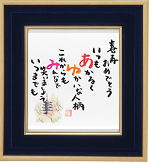 喜寿
おめでとう
いつも
あかるく
ゆかいな人柄
これからも
みんなで
いつまでも